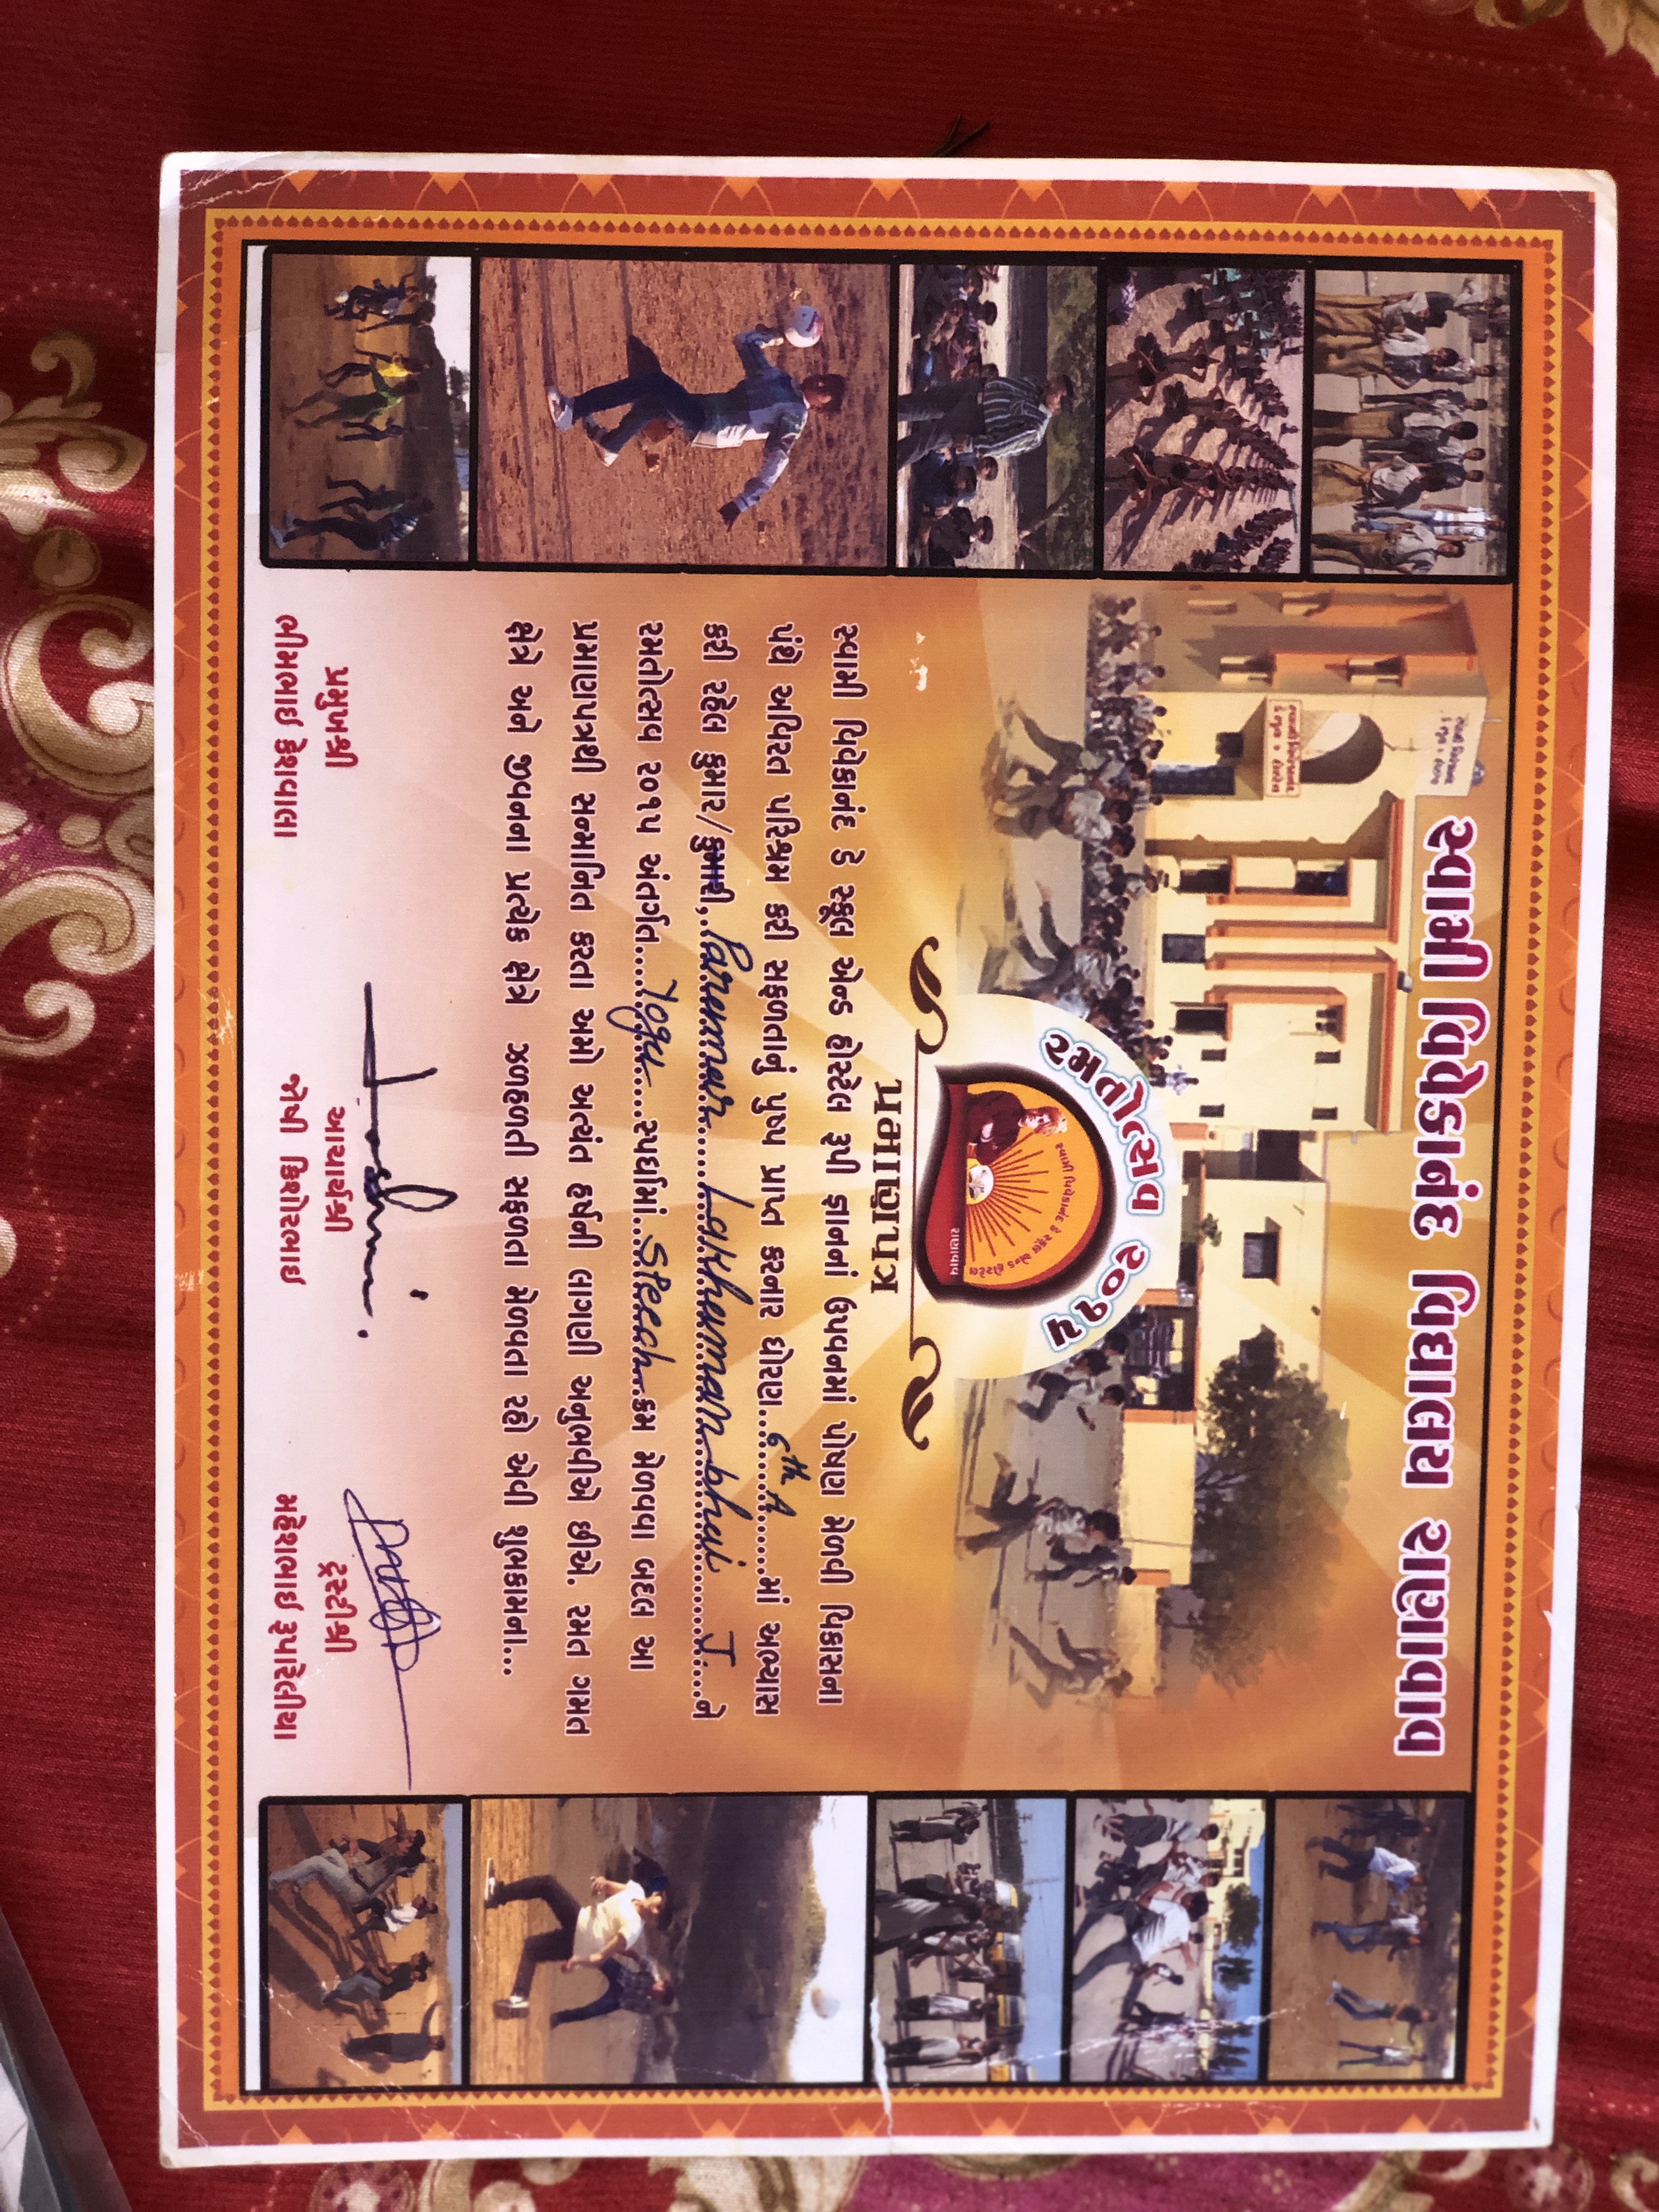 સ્વામી વિવેકાનંદ વિદ્યાલય રાણાવાવ
સ્વામી વિવેકાનંદ
ડે સ્કુલ & હોસ્ટેલ
સ્વામી વિવેકાનંદ
ડે સ્કુલ & હોસ્ટેલ
રમતોત્સવ ૨૦૧૫
સ્વામી વિવેકાનંદ ડે સ્કૂલ એન્ડ હોસ્ટેલ
રાણાવાવ
પ્રમાણપત્ર
સ્વામી વિવેકાનંદ ડે સ્કૂલ એન્ડ હોસ્ટેલ રૂપી જ્ઞાનનાં ઉપવનમાં પોષણ મેળવી વિકાસના
પંથે અવિરત પરિશ્રમ કરી સફળતાનું પુષ્પ પ્રાપ્ત કરનાર ધોરણ..6th A......માં અભ્યાસ
કરી રહેલ કુમાર/કુમારી,..Paramar Lakhaman bhai J....ને
રમતોત્સવ ૨૦૧૫ અંતર્ગત....Yoga....સ્પર્ધામાં..Speech..ક્રમ મેળવવા બદલ આ
પ્રમાણપત્રથી સન્માનિત કરતા અમો અત્યંત હર્ષની લાગણી અનુભવીએ છીએ. રમત ગમત
ક્ષેત્રે અને જીવનના પ્રત્યેક ક્ષેત્રે ઝળહળતી સફળતા મેળવતા રહો એવી શુભકામના...
પ્રમુખશ્રી
ભીમભાઇ કેશવાલા
Joshni.
આચાર્યશ્રી
જોષી કિશોરભાઇ
ટ્રસ્ટીશ્રી
મહેશભાઇ રૂપારેલીયા